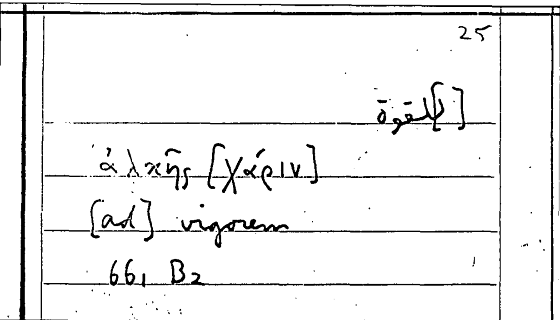 25
[لل]قوة
ἀλκῆς [χάριν]
[ad] vigorem
661 B2